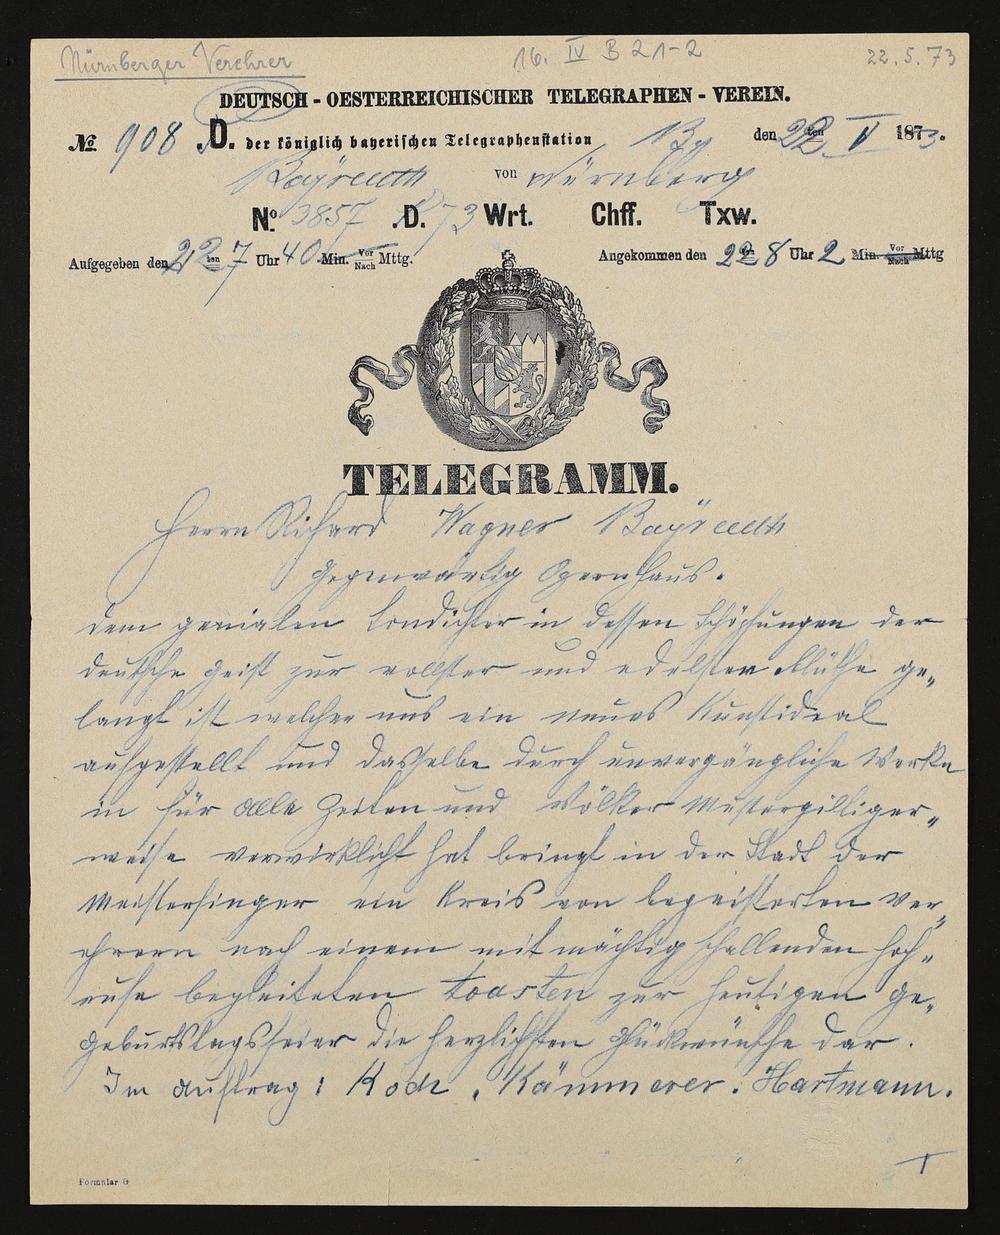 Nürnberger Verehrer 16. IV B 21-2 22.5.73
DEUTSCH - OESTERREICHISCHER TELEGRAPHEN - VEREIN.
No 908 D. der königlich bayerischen Telegraphenstation By den 22ten V 1873.
Bayreuth von Nürnberg
No. 3857 D. 73 Wrt. Chff. Txw.
Aufgegeben den 22ten 7 Uhr 40 Min. Vor Nach Mttg. Angekommen den 22ten 8 Uhr 2 Min. Vor Nach Mttg
TELEGRAMM.
Herrn Richard Wagner Bayreuth
gegenwärtig Opernhaus.
dem genialen Tondichter in dessen Schöpfungen der
deutsche Geist zur vollster und edelster Blüthe ge„
langt ist welcher uns ein neues Kunstideal
aufgestellt und dasselbe durch unvergängliche Werke
in für alle Zeiten und Völker Mustergilliger„
weise verwirklicht hat bringt in der Stadt der
Meistersinger ein Kreis von begeisterten Ver„
ehrern nach einem mit mächtig schallenden Hoch„
rufe begleiteten Toasten zur heutigen Ge„
Geburtstagsfeier die herzlichsten Glückwünsche dar.
Im Auftrag: Koch, Kämmerer. Hartmann.
Formular G